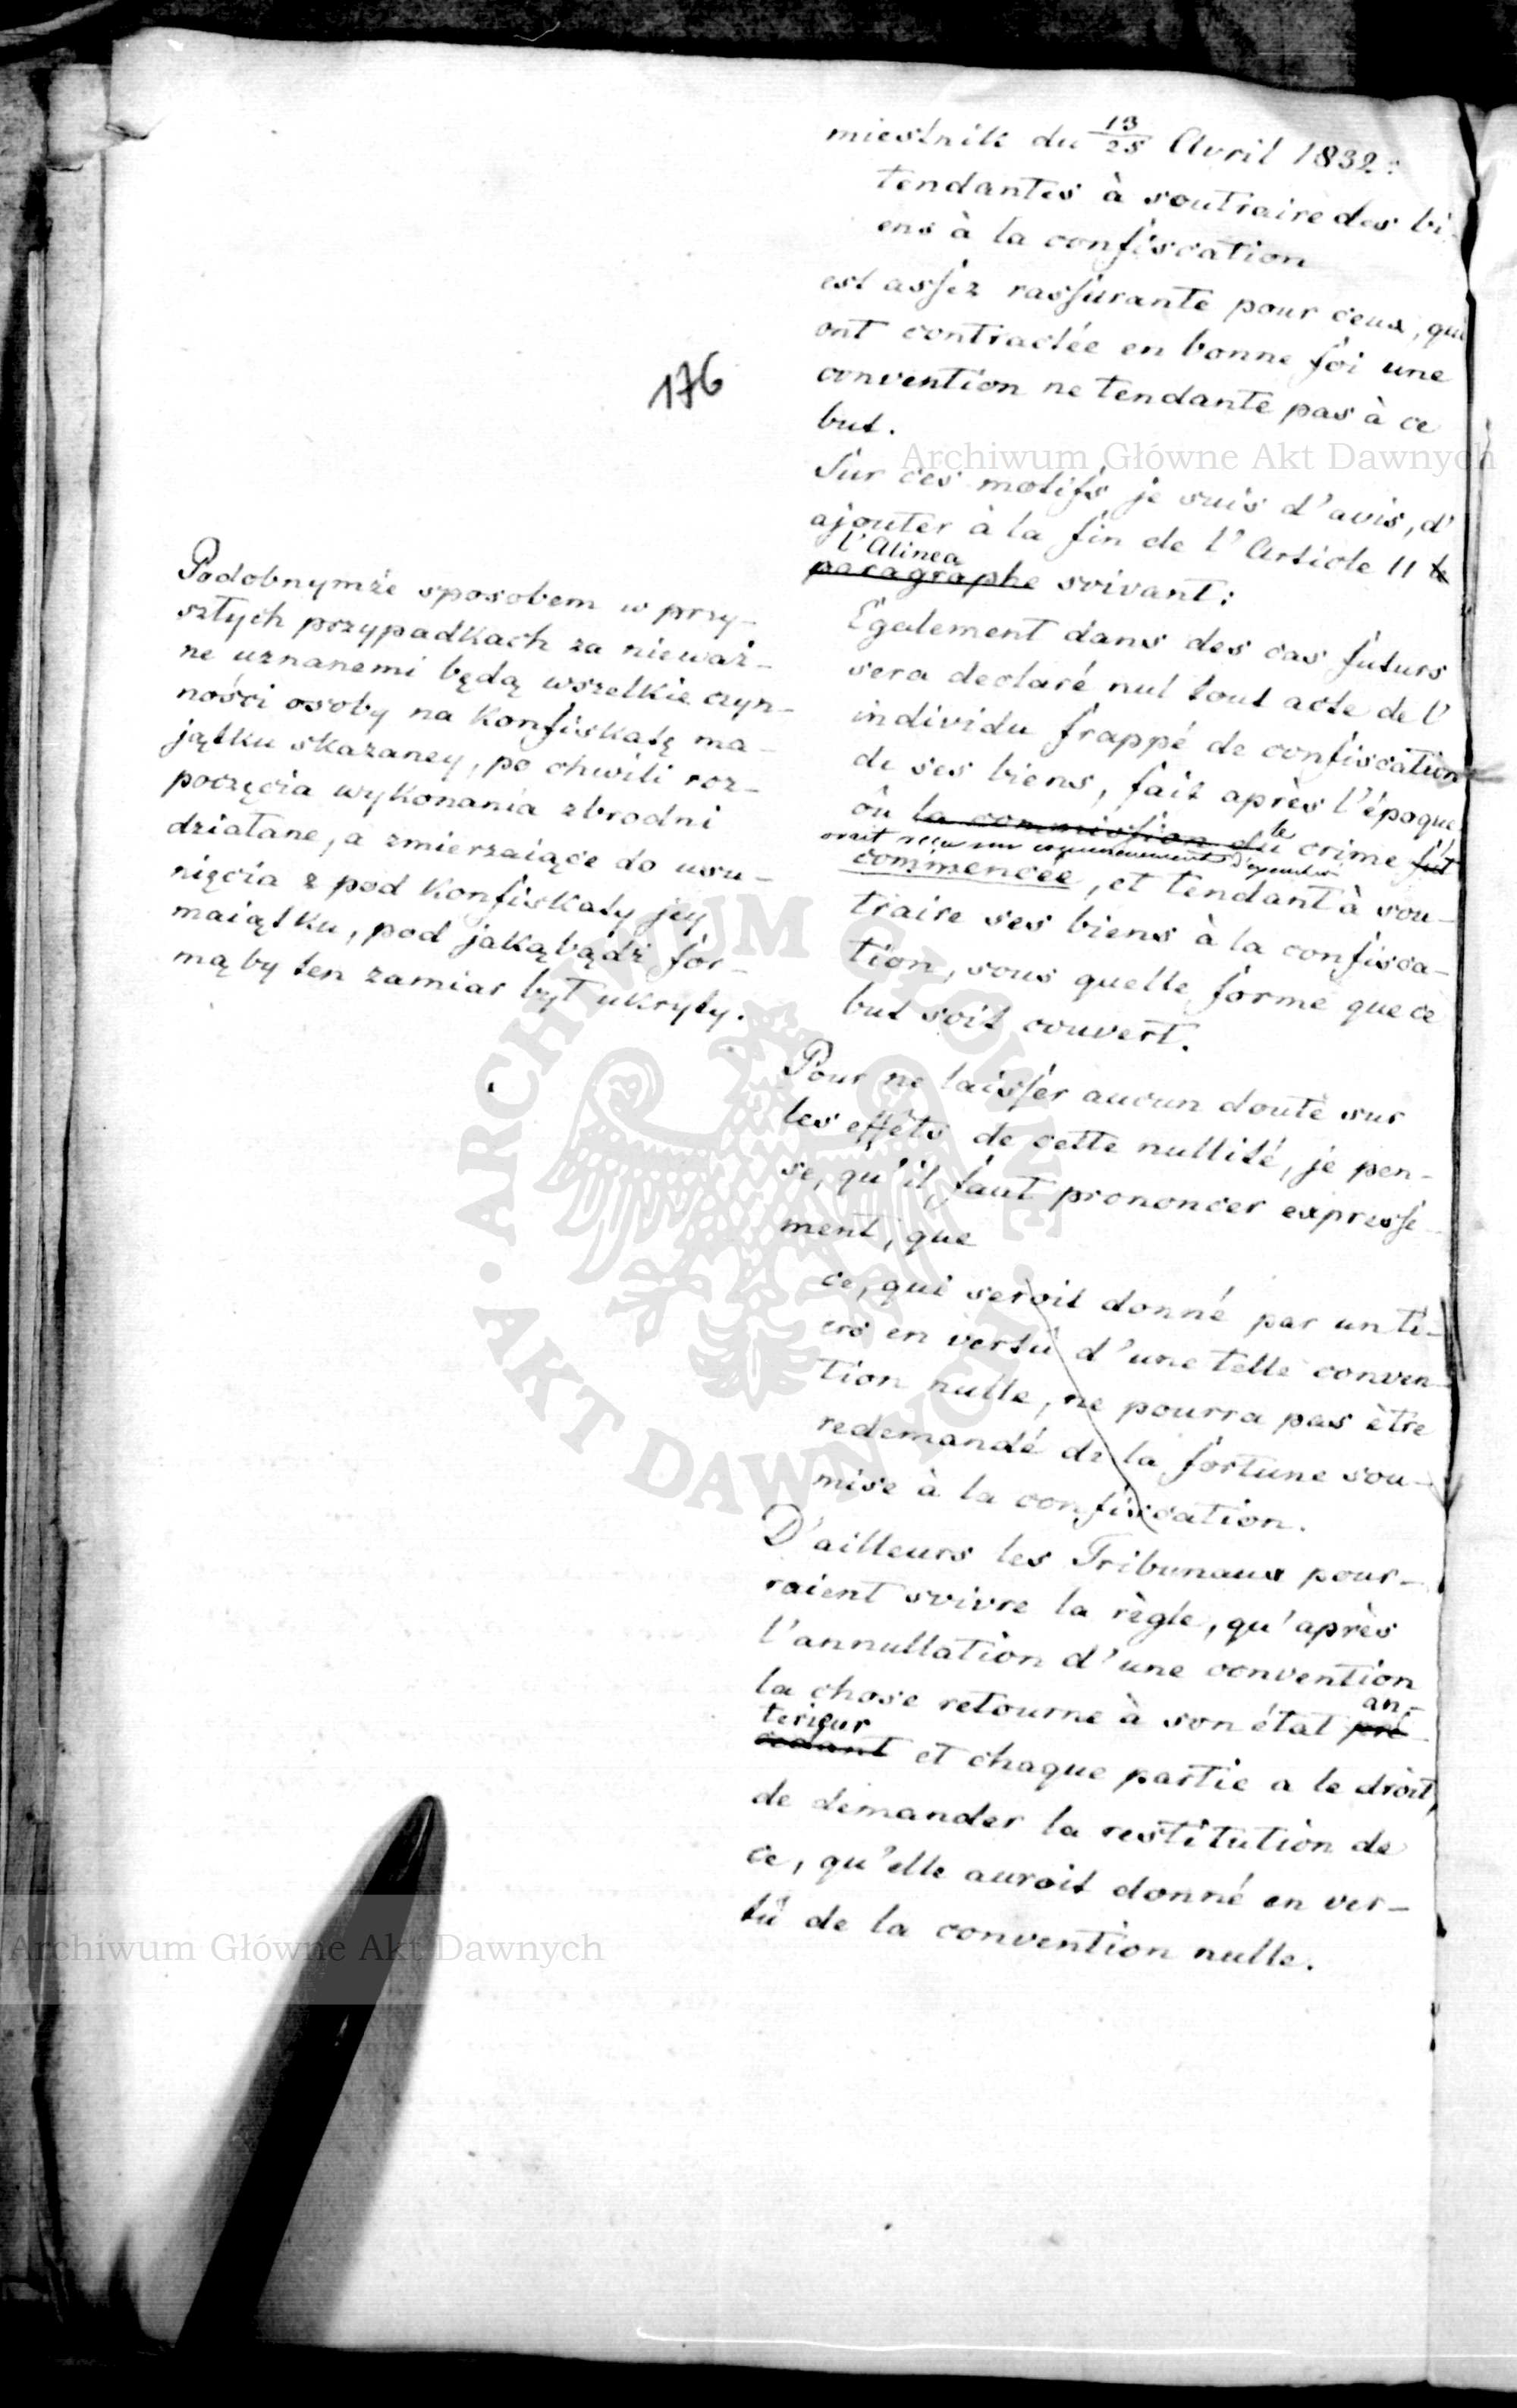 176
miestnik du 13/25 Avril 1832:
tendantes à soutraire des bi-
ens à la confiscation
est assez rassurante pour ceux, qui
ont contractée en bonne foi une
convention ne tendante pas à ce
but.
Sur ces motifs je suis d'avis, d'
ajouter à la fin de l'Article 11 le
l'Alinea
paragraphe suivant:
Egalement dans des cas futurs
sera declaré nul tout acte de l'
individu frappé de confiscation
de ses biens, fait après l'époque,
où la commission du le crime fut
avait reçu un commencement d'execution
commencée, et tendant à sou-
traire ses biens à la confisca-
tion, sous quelle forme que ce
but soit couvert.
Pour ne laisser aucun doute sur
les effêts de cette nullité, je pen-
se, qu'il faut prononcer expressé-
ment, que
ce, qui seroit donné par un ti-
ers en vertù d'une telle conven-
tion nulle, ne pourra pas être
redemandé de la fortune sou-
mise à la confiscation.
D'ailleurs les Tribunaux pour-
raient suivre la règle, qu'après
l'annullation d'une convention
la chose retourne à son état pré-
an-
terieur
cedant et chaque partie a le droit,
de demander la restitution de
ce, qu'elle auroit donné en ver-
tù de la convention nulle.
Podobnymże sposobem w przy-
szłych przypadkach za nieważ-
ne uznanemi będą wszelkie czyn-
ności osoby na Konfiskatę ma-
jątku skazaney, po chwili roz-
poczęcia wykonania zbrodni
działane, a zmierzaiące do usu-
nięcia z pod Konfiskaty jey
maiątku, pod jakąbądź for-
mą by ten zamiar był ukryty.
Archiwum Główne Akt Dawnych
ARCHIWUM GŁÓWNE
AKT DAWNYCH
Archiwum Główne Akt Dawnych